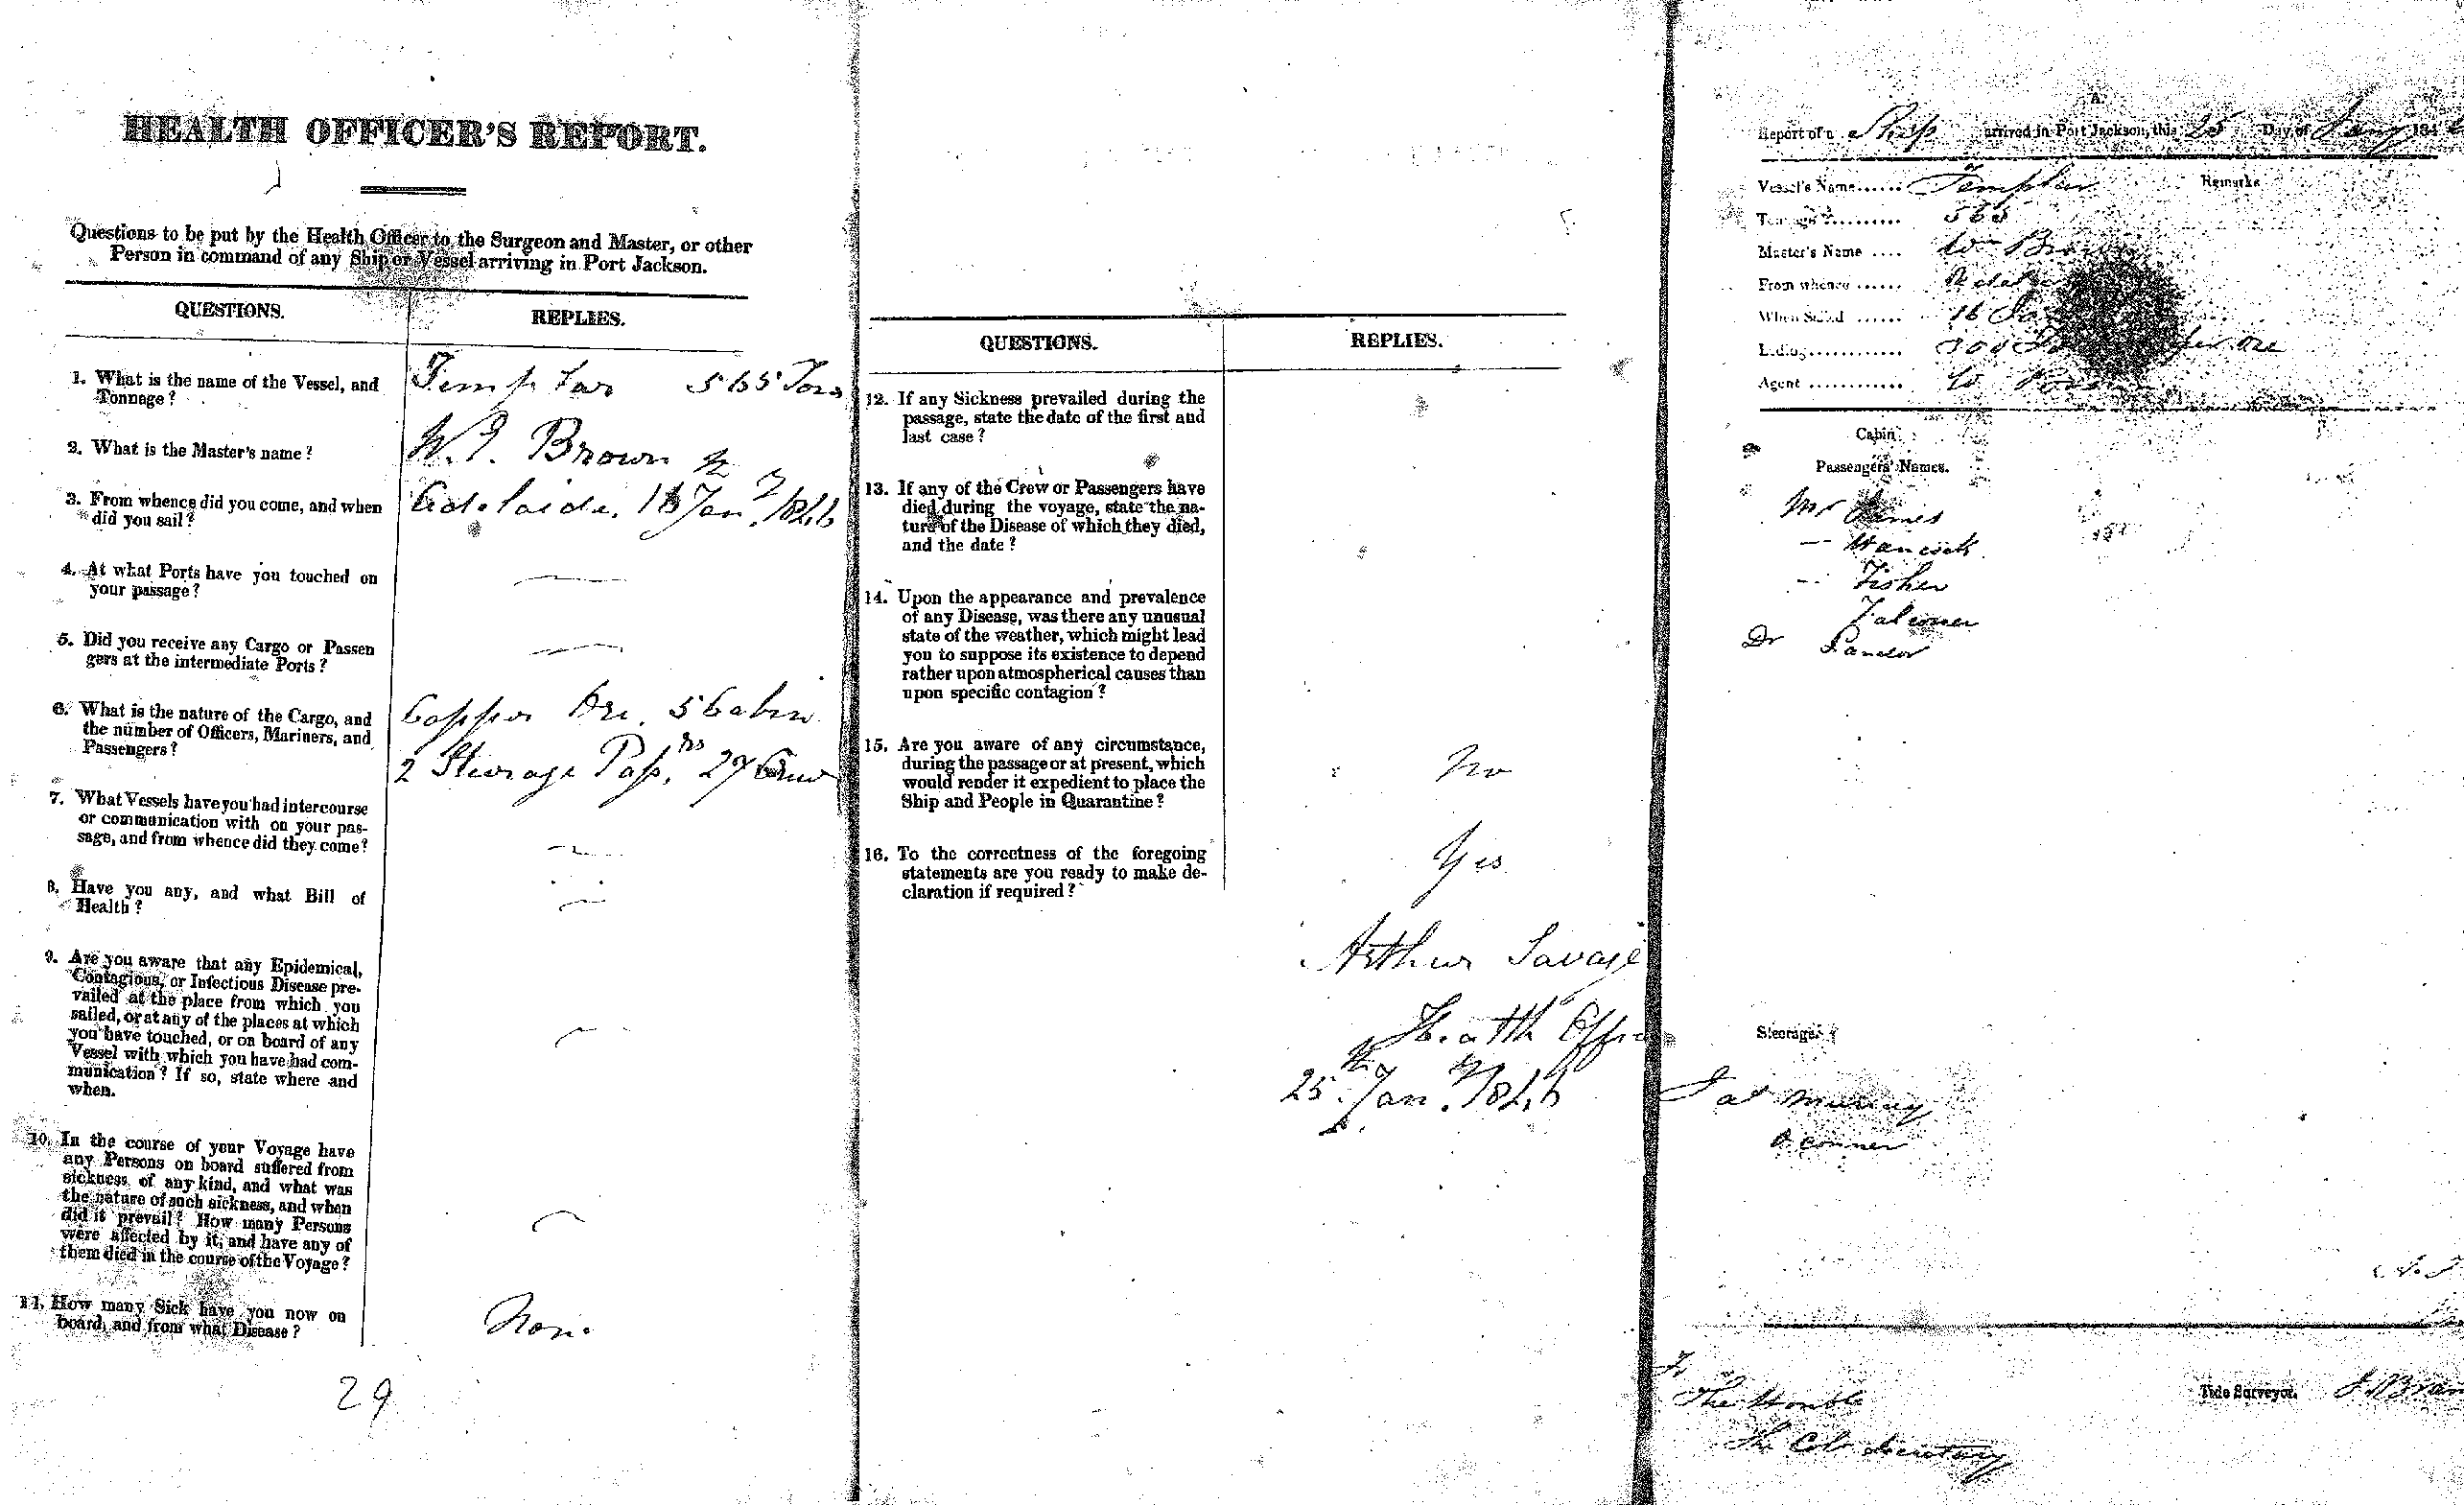 HEALTH OFFICER'S REPORT.
Questions to be put by the Health Officer to the Surgeon and Master, or other
Person in command of any Ship or Vessel arriving in Port Jackson.
QUESTIONS. REPLIES.
1. What is the name of the Vessel, and Templar 565 Tons
Tonnage?
2. What is the Master's name? W.J. Brown
3. From whence did you come, and when Adelaide, 16th Jany 1846
did you sail?
4. At what Ports have you touched on
your passage?
5. Did you receive any Cargo or Passen
gers at the intermediate Ports?
6. What is the nature of the Cargo, and Copper Ore, 5 Cabin
the number of Officers, Mariners, and
Passengers? 2 Steerage Passrs 27 Crew
7. What Vessels have you had intercourse
or communication with on your pas-
sage, and from whence did they come?
8. Have you any, and what Bill of
Health?
9. Are you aware that any Epidemical,
Contagious, or Infectious Disease pre-
vailed at the place from which you
sailed, or at any of the places at which
you have touched, or on board of any
Vessel with which you have had com-
munication? If so, state where and
when.
10. In the course of your Voyage have
any Persons on board suffered from
sickness of any kind, and what was
the nature of such sickness, and when
did it prevail? How many Persons
were affected by it, and have any of
them died in the course of the Voyage?
11. How many Sick have you now on None
board, and from what Disease?
29
QUESTIONS. REPLIES.
12. If any Sickness prevailed during the
passage, state the date of the first and
last case?
13. If any of the Crew or Passengers have
died during the voyage, state the na-
ture of the Disease of which they died,
and the date?
14. Upon the appearance and prevalence
of any Disease, was there any unusual
state of the weather, which might lead
you to suppose its existence to depend
rather upon atmospherical causes than
upon specific contagion?
15. Are you aware of any circumstance,
during the passage or at present, which No
would render it expedient to place the
Ship and People in Quarantine?
16. To the correctness of the foregoing Yes
statements are you ready to make de-
claration if required?
Arthur Savage
Health Offi
25th Jany 1846
A.
Report of a Ship arrived in Port Jackson, this 25 Day of Jany 184
Vessel's Name...... Templar Remarks
Tonnage .......... 565
Master's Name .... Wm Brown
From whence ......
When Sailed ...... 16
Lading............ 300 ore
Agent ............
Cabin
Passengers' Names.
Mr James
— Hancock
— Fisher
Falconer
Dr
Steerage
Murray
O'Conner
To
The Honble
The Col Secretary
Tide Surveyor,